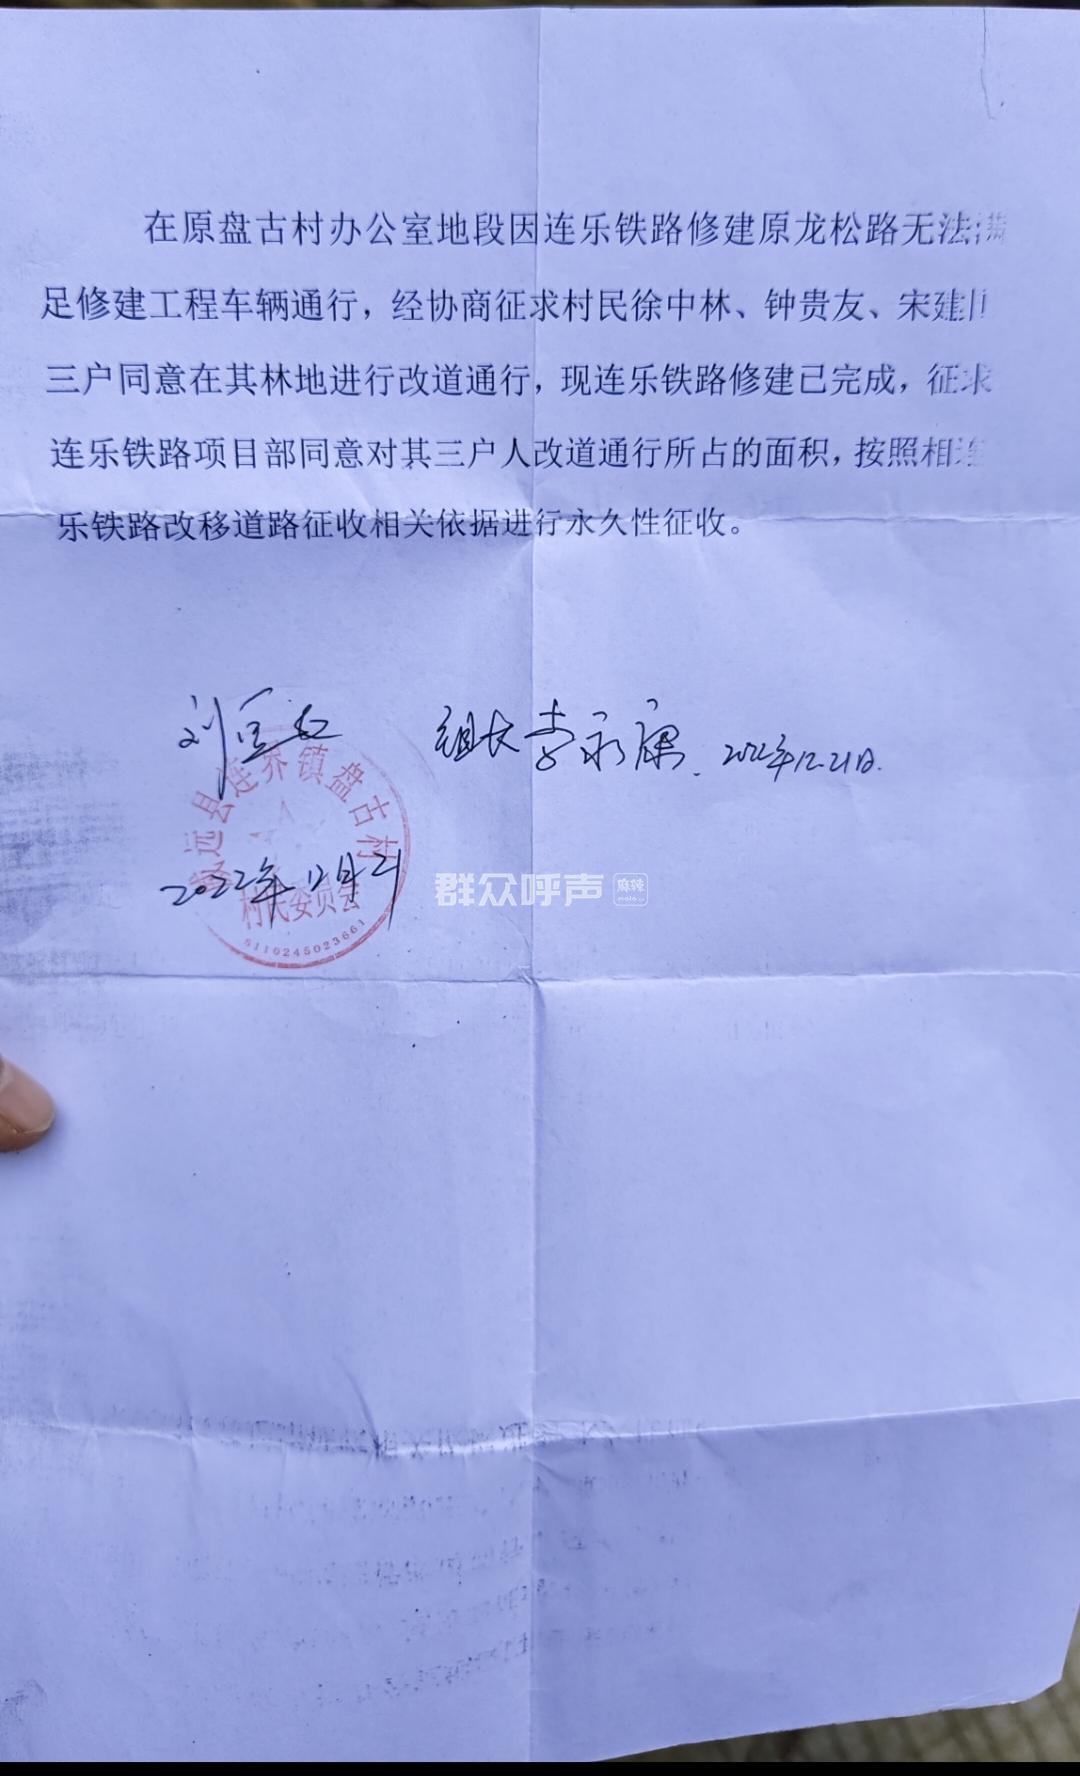 在原盘古村办公室地段因连乐铁路修建原龙松路无法满
足修建工程车辆通行，经协商征求村民徐中林、钟贵友、宋建
三户同意在其林地进行改道通行，现连乐铁路修建已完成，征求
连乐铁路项目部同意对其三户人改道通行所占的面积，按照相连
乐铁路改移道路征收相关依据进行永久性征收。
组长李永康 2022年12.21日.
远县连界镇盘古村
2022年12月21
村民委员会
5110245023661
群众呼声 麻辣